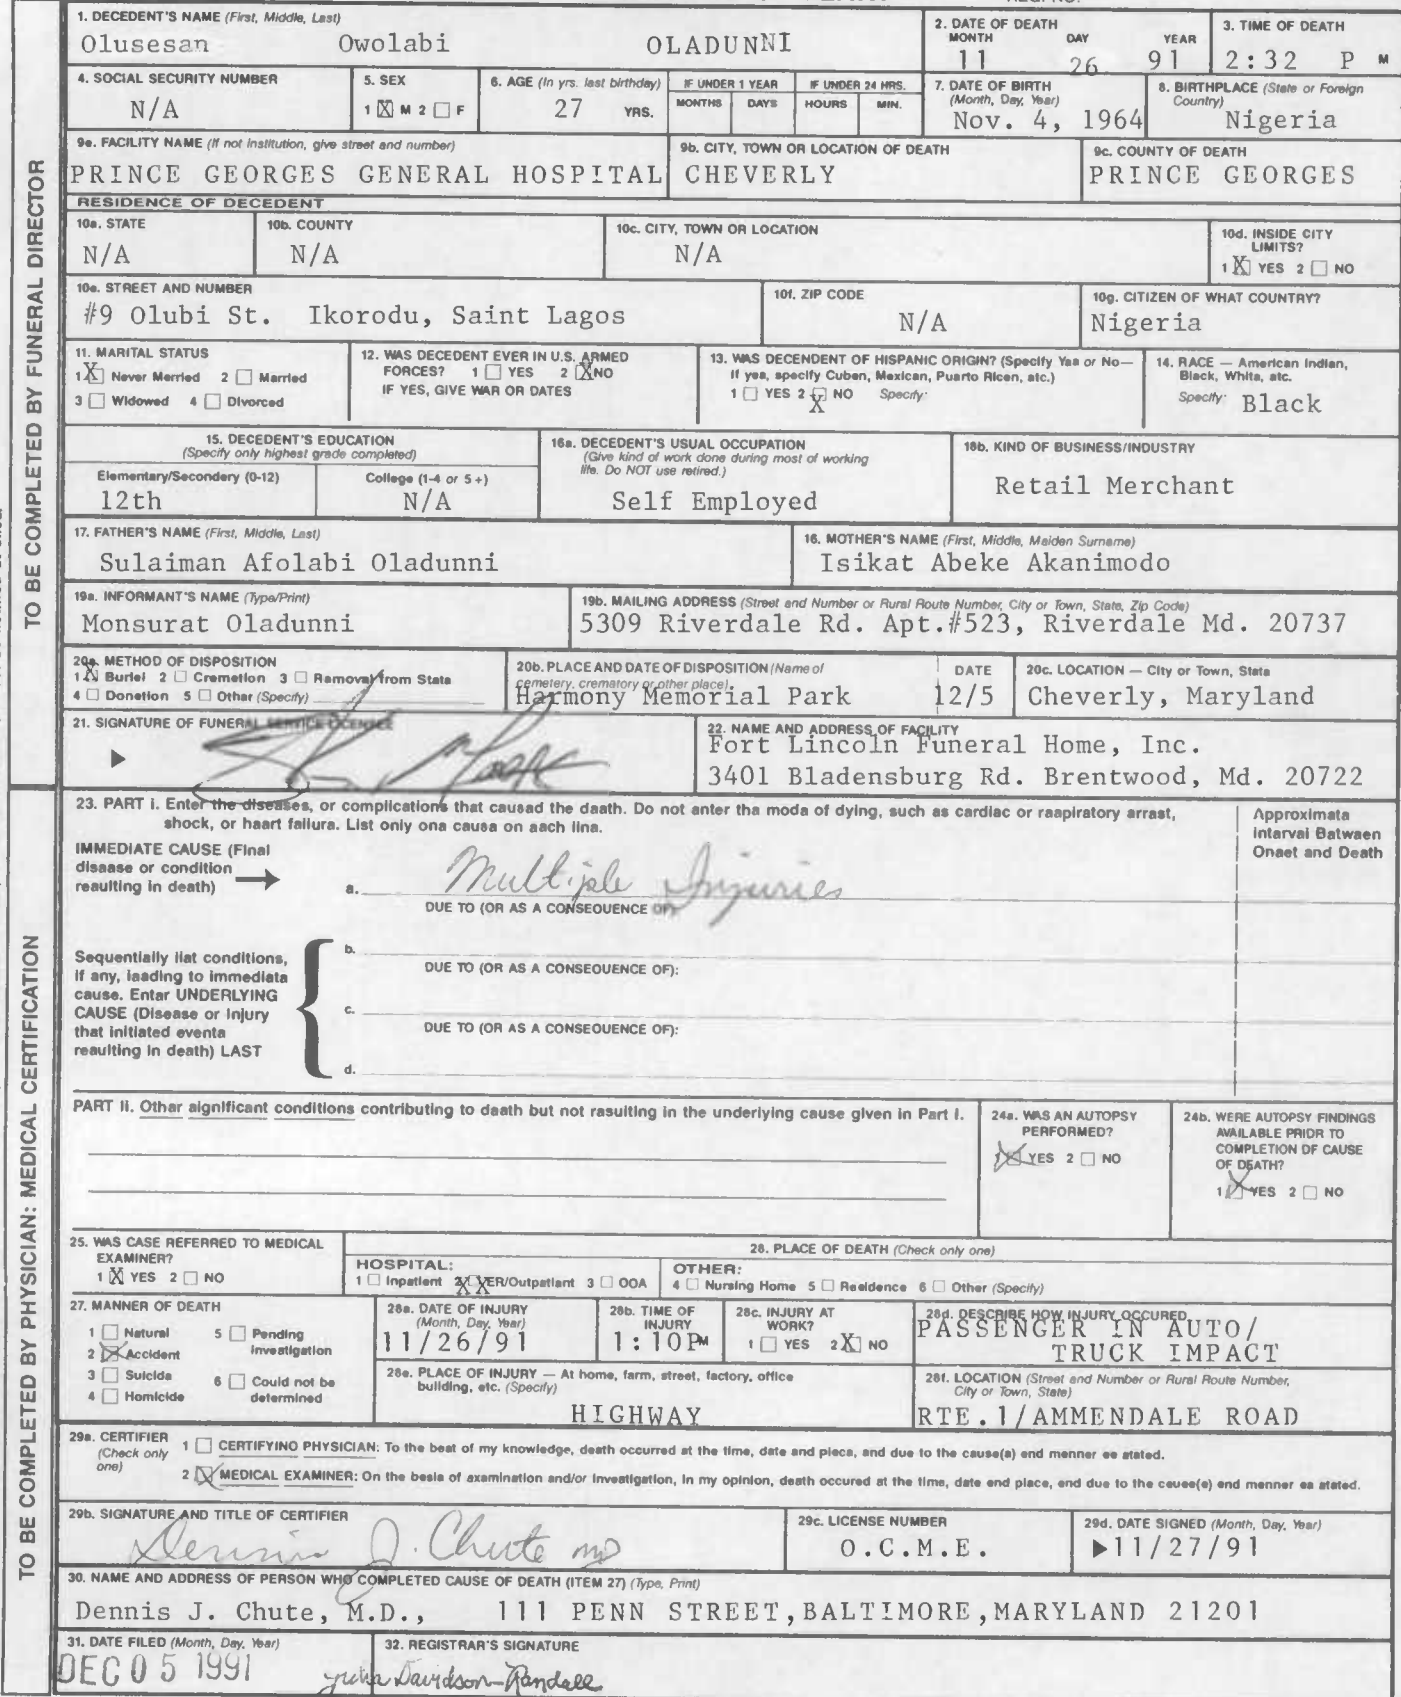 1. DECEDENT'S NAME (First, Middle, Last)
Olusesan Owolabi OLADUNNI
2. DATE OF DEATH
MONTH DAY YEAR
11 26 91
3. TIME OF DEATH
2:32 P M
4. SOCIAL SECURITY NUMBER
N/A
5. SEX
1 X M 2 F
6. AGE (In yrs. last birthday)
27 YRS.
IF UNDER 1 YEAR
MONTHS DAYS
IF UNDER 24 HRS.
HOURS MIN.
7. DATE OF BIRTH
(Month, Day, Year)
Nov. 4, 1964
8. BIRTHPLACE (State or Foreign
Country)
Nigeria
9a. FACILITY NAME (If not institution, give street and number)
PRINCE GEORGES GENERAL HOSPITAL
9b. CITY, TOWN OR LOCATION OF DEATH
CHEVERLY
9c. COUNTY OF DEATH
PRINCE GEORGES
RESIDENCE OF DECEDENT
10a. STATE
N/A
10b. COUNTY
N/A
10c. CITY, TOWN OR LOCATION
N/A
10d. INSIDE CITY
LIMITS?
1 X YES 2 NO
10e. STREET AND NUMBER
#9 Olubi St. Ikorodu, Saint Lagos
10f. ZIP CODE
N/A
10g. CITIZEN OF WHAT COUNTRY?
Nigeria
11. MARITAL STATUS
1 X Never Married 2 Married
3 Widowed 4 Divorced
12. WAS DECEDENT EVER IN U.S. ARMED
FORCES? 1 YES 2 X NO
IF YES, GIVE WAR OR DATES
13. WAS DECENDENT OF HISPANIC ORIGIN? (Specify Yes or No—
If yes, specify Cuban, Mexican, Puerto Rican, etc.)
1 YES 2 X NO Specify:
14. RACE — American Indian,
Black, White, etc.
Specify: Black
15. DECEDENT'S EDUCATION
(Specify only highest grade completed)
Elementary/Secondary (0-12)
12th
College (1-4 or 5+)
N/A
16a. DECEDENT'S USUAL OCCUPATION
(Give kind of work done during most of working
life. Do NOT use retired.)
Self Employed
16b. KIND OF BUSINESS/INDUSTRY
Retail Merchant
17. FATHER'S NAME (First, Middle, Last)
Sulaiman Afolabi Oladunni
18. MOTHER'S NAME (First, Middle, Maiden Surname)
Isikat Abeke Akanimodo
19a. INFORMANT'S NAME (Type/Print)
Monsurat Oladunni
19b. MAILING ADDRESS (Street and Number or Rural Route Number, City or Town, State, Zip Code)
5309 Riverdale Rd. Apt.#523, Riverdale Md. 20737
20a. METHOD OF DISPOSITION
1 X Burial 2 Cremation 3 Removal from State
4 Donation 5 Other (Specify)
20b. PLACE AND DATE OF DISPOSITION (Name of
cemetery, crematory or other place)
Harmony Memorial Park
DATE
12/5
20c. LOCATION — City or Town, State
Cheverly, Maryland
21. SIGNATURE OF FUNERAL SERVICE LICENSEE
22. NAME AND ADDRESS OF FACILITY
Fort Lincoln Funeral Home, Inc.
3401 Bladensburg Rd. Brentwood, Md. 20722
TO BE COMPLETED BY FUNERAL DIRECTOR
23. PART I. Enter the diseases, or complications that caused the death. Do not enter the mode of dying, such as cardiac or respiratory arrest,
shock, or heart failure. List only one cause on each line.
Approximate
Interval Between
Onset and Death
IMMEDIATE CAUSE (Final
disease or condition
resulting in death)
a. Multiple Injuries
DUE TO (OR AS A CONSEQUENCE OF):
Sequentially list conditions,
if any, leading to immediate
cause. Enter UNDERLYING
CAUSE (Disease or Injury
that initiated events
resulting in death) LAST
b.
DUE TO (OR AS A CONSEQUENCE OF):
c.
DUE TO (OR AS A CONSEQUENCE OF):
d.
PART II. Other significant conditions contributing to death but not resulting in the underlying cause given in Part I.
24a. WAS AN AUTOPSY
PERFORMED?
1 X YES 2 NO
24b. WERE AUTOPSY FINDINGS
AVAILABLE PRIOR TO
COMPLETION OF CAUSE
OF DEATH?
1 X YES 2 NO
25. WAS CASE REFERRED TO MEDICAL
EXAMINER?
1 X YES 2 NO
26. PLACE OF DEATH (Check only one)
HOSPITAL:
1 Inpatient 2 XX ER/Outpatient 3 DOA
OTHER:
4 Nursing Home 5 Residence 6 Other (Specify)
27. MANNER OF DEATH
1 Natural 5 Pending
Investigation
2 X Accident
3 Suicide 6 Could not be
determined
4 Homicide
28a. DATE OF INJURY
(Month, Day, Year)
11/26/91
28b. TIME OF
INJURY
1:10PM
28c. INJURY AT
WORK?
1 YES 2 X NO
28d. DESCRIBE HOW INJURY OCCURED
PASSENGER IN AUTO/
TRUCK IMPACT
28e. PLACE OF INJURY — At home, farm, street, factory, office
building, etc. (Specify)
HIGHWAY
28f. LOCATION (Street and Number or Rural Route Number,
City or Town, State)
RTE.1/AMMENDALE ROAD
29a. CERTIFIER
(Check only
one)
1 CERTIFYING PHYSICIAN: To the best of my knowledge, death occurred at the time, date and place, and due to the cause(s) and manner as stated.
2 X MEDICAL EXAMINER: On the basis of examination and/or investigation, in my opinion, death occured at the time, date and place, and due to the cause(s) and manner as stated.
29b. SIGNATURE AND TITLE OF CERTIFIER
Dennis J. Chute MD
29c. LICENSE NUMBER
O.C.M.E.
29d. DATE SIGNED (Month, Day, Year)
11/27/91
30. NAME AND ADDRESS OF PERSON WHO COMPLETED CAUSE OF DEATH (ITEM 27) (Type, Print)
Dennis J. Chute, M.D., 111 PENN STREET,BALTIMORE,MARYLAND 21201
31. DATE FILED (Month, Day, Year)
DEC 05 1991
32. REGISTRAR'S SIGNATURE
Davidson-Randall
TO BE COMPLETED BY PHYSICIAN: MEDICAL CERTIFICATION